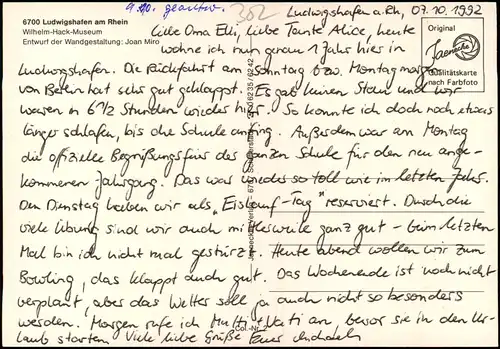 9.10. geantw.
202
6700 Ludwigshafen am Rhein
Wilhelm-Hack-Museum
Entwurf der Wandgestaltung: Joan Miro
Original
Jaenecke
Qualitätskarte
nach Farbfoto
Ludwigshafen a.Rh., 07.10.1992
Liebe Oma Elli, liebe Tante Alice, heute
wohne ich nun genau 1 Jahr hier in
Ludwigshafen. Die Rückfahrt am Sonntag bzw. Montag morgen
von Berlin hat sehr gut geklappt. Es gab keinen Stau und wir
waren in 6 1/2 Stunden wieder hier. So konnte ich doch noch etwas
länger schlafen, bis die Schule anfing. Außerdem war am Montag
die offizielle Begrüßungsfeier des ganzen Schule für den neu ange-
kommenen Jahrgang. Das war wieder so toll wie im letzten Jahr.
Den Dienstag haben wir als „Eislauf-Tag" reserviert. Durch die
viele Übung sind wir auch mittlerweile ganz gut - beim letzten
Mal bin ich nicht mal gestürzt. Heute abend wollen wir zum
Bowling, das klappt auch gut. Das Wochenende ist noch nicht
verplant, aber das Wetter soll ja auch nicht so besonders
werden. Morgen rufe ich Mutti + Vati an, bevor sie in den Ur-
laub starten. Viele liebe Grüße Euer